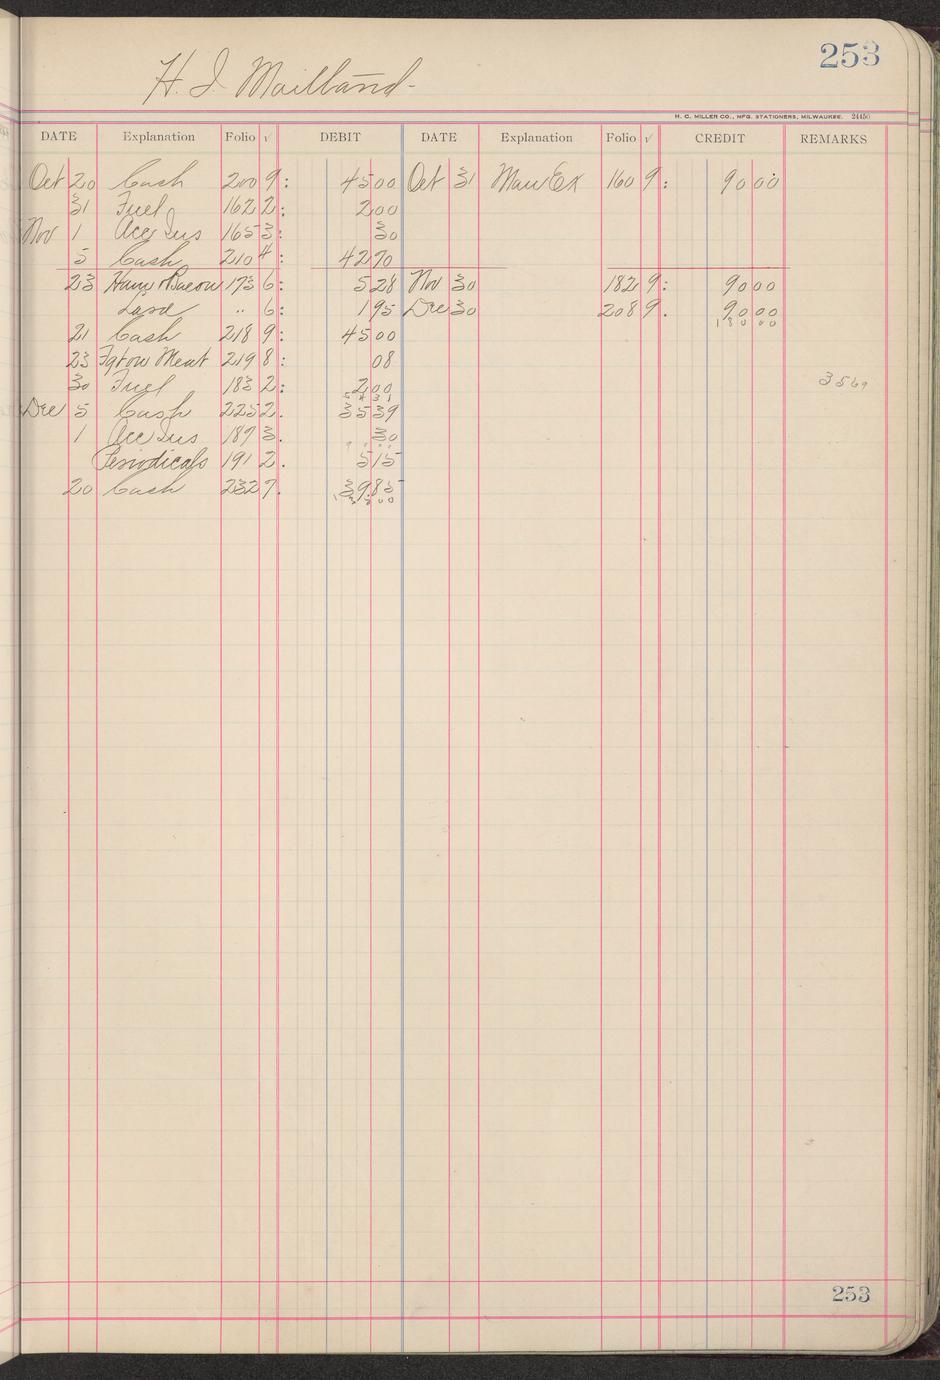 253
H. J. Mailland-
H. C. MILLER CO., MFG. STATIONERS, MILWAUKEE. 24450
DATE Explanation Folio √ DEBIT DATE Explanation Folio √ CREDIT REMARKS
Oct 20 Cash 200 9: 45 00 Oct 31 Man Ex 160 9: 90 00
31 Fuel 162 2: 2 00
Nov 1 Acc Ins 165 3: 30
5 Cash 210 4: 42 70
23 Ham & Bacon 173 6: 5 28 Nov 30 182 9: 90 00
Lard " 6: 1 95 Dec 30 208 9. 90 00
180 00
21 Cash 218 9: 45 00
23 Meat 219 8: 08
30 Fuel 183 2: 2 00 35 69
54 31
Dec 5 Cash 225 2. 35 39
1 Acc Ins 189 3. 30
Periodicals 191 2. 5 15
20 Cash 232 7. 39 85
253